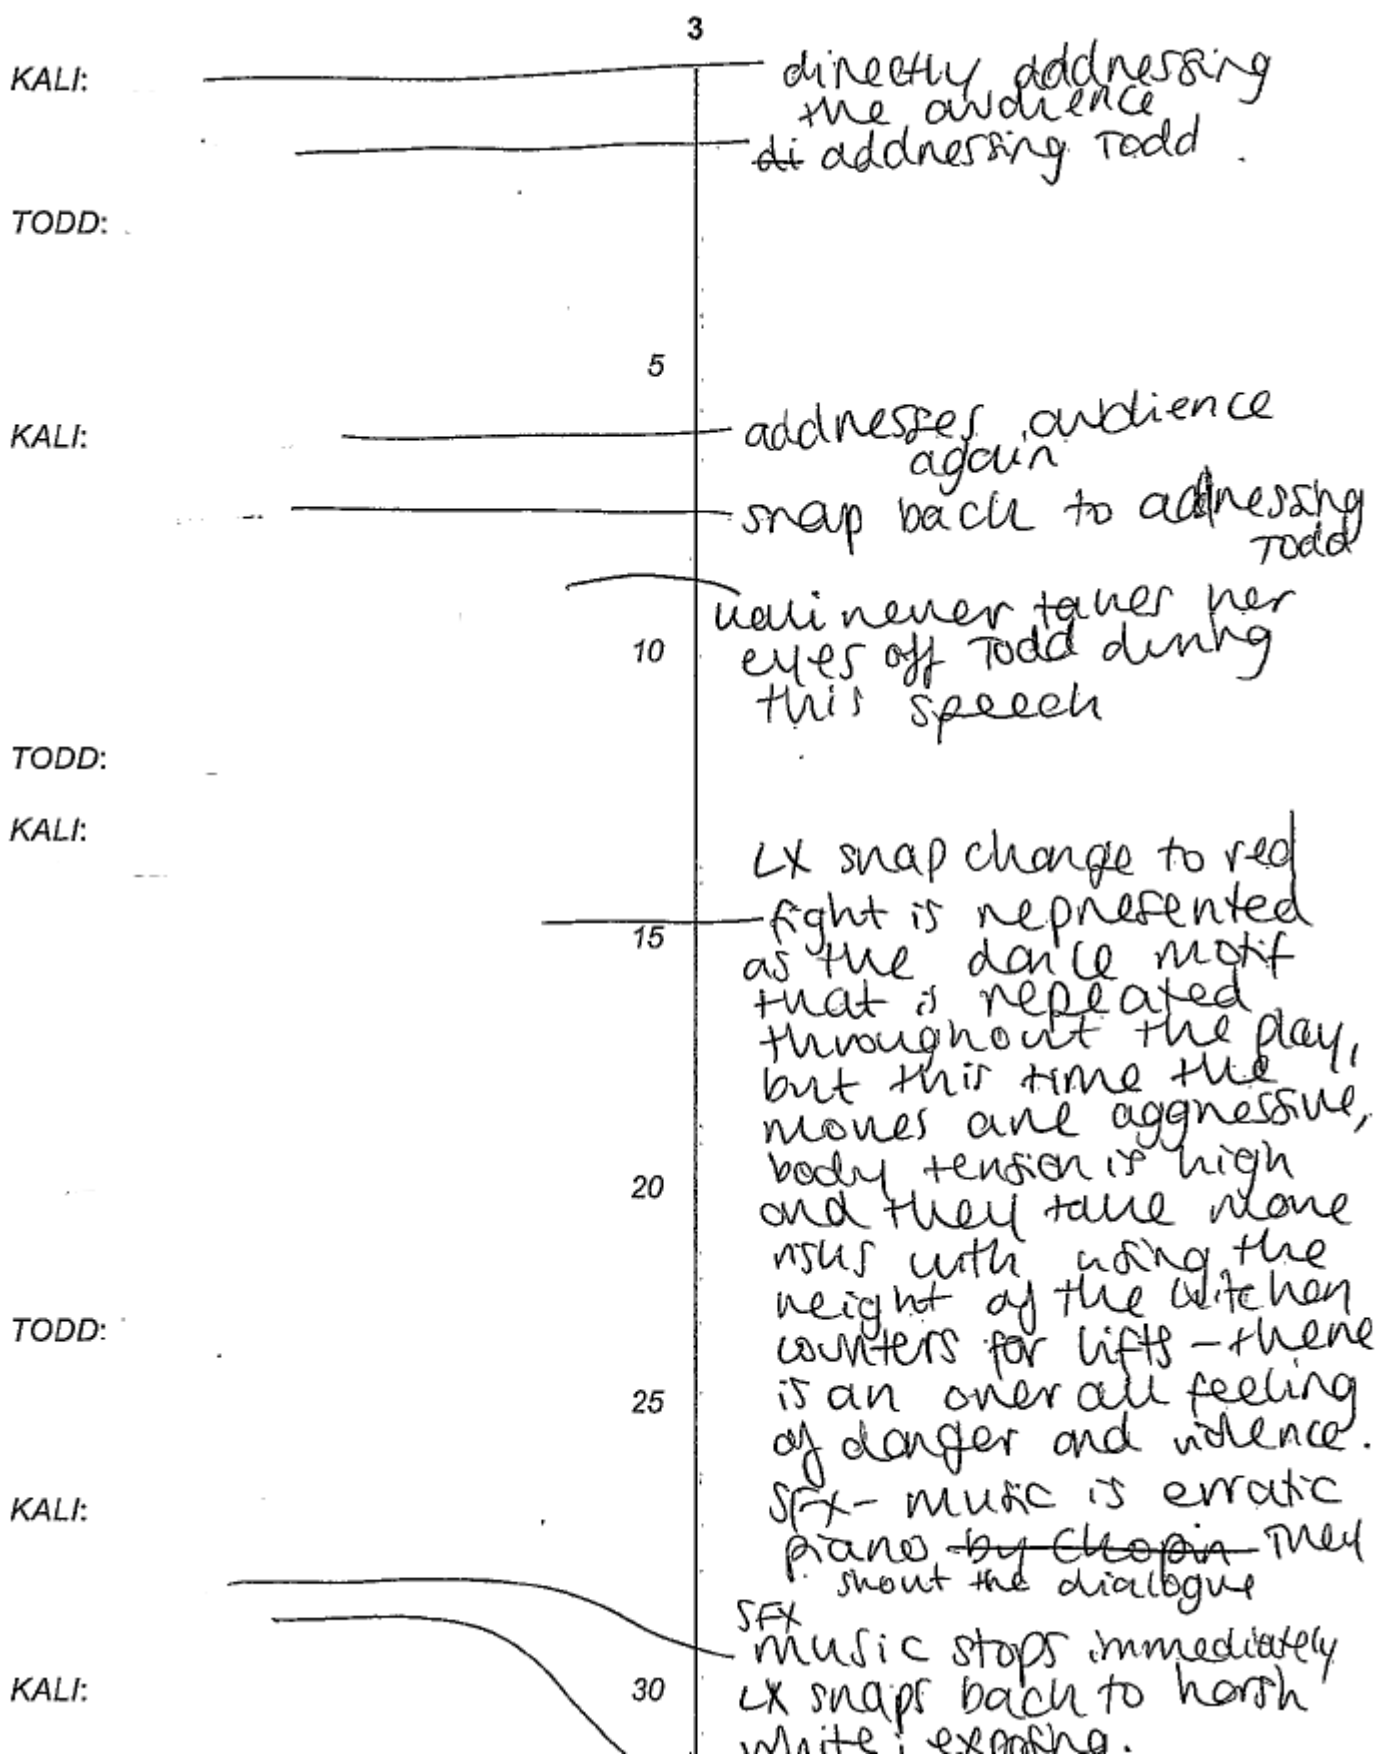 3
KALI: directly addressing
the audience
di addressing Todd
TODD:
5
KALI: addresses audience
again
snap back to addressing
Todd
Kali never takes her
10 eyes off Todd during
this speech
TODD:
KALI:
LX snap change to red
15 fight is represented
as the dance motif
that is repeated
throughout the play,
but this time the
moves are aggressive,
body tension is high
20 and they take more
risks with using the
height of the kitchen
TODD: counters for lifts - there
25 is an overall feeling
of danger and violence.
KALI: SFX - music is erratic
piano by Chopin They
shout the dialogue
SFX
music stops immediately
KALI: 30 LX snaps back to harsh
white; exposing.